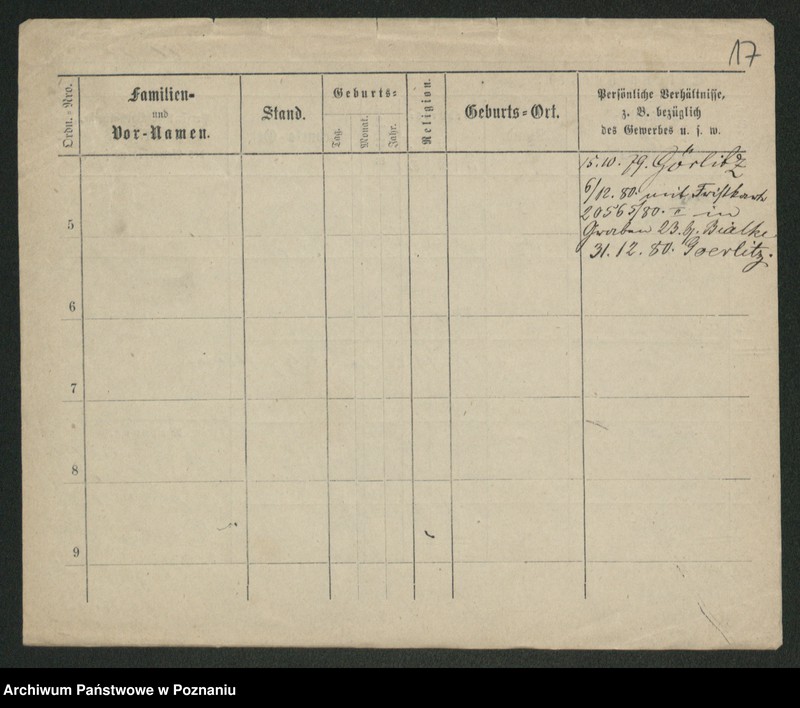 17
Ordn.-Nro.
Familien-
und
Vor-Namen.
Stand.
Geburts-
Tag.
Monat.
Jahr.
Religion.
Geburts-Ort.
Persönliche Verhältnisse,
z. B. bezüglich
des Gewerbes u. s. w.
15.10.79. Görlitz
6/12.80. mit Fristkarte
20565/80. in
Graben 23. b. Bialke.
31.12.80. Goerlitz.
5
6
7
8
9
Archiwum Państwowe w Poznaniu